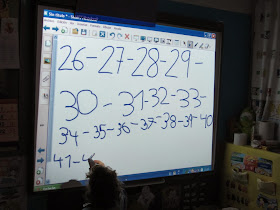 26-27-28-29-
30-31-32-33-
34-35-36-37-38-39-40
41-4